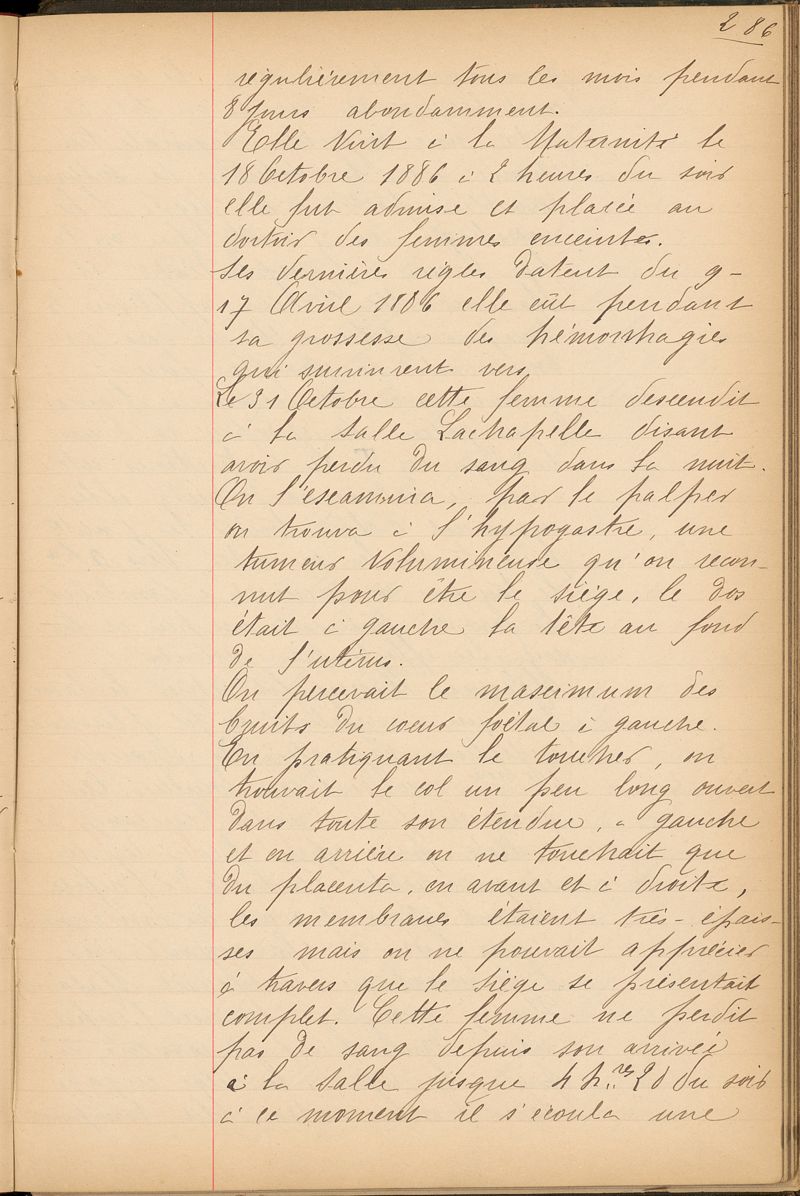 286
régulièrement tous les mois pendant
8 jours abondamment.
Elle vint à la Maternité le
18 Octobre 1886 à 2 heures du soir
elle fut admise et placée au
dortoir des femmes enceintes.
Ses dernières règles datent du 9-
17 Avril 1886 elle eût pendant
sa grossesse des hémorrhagies
qui survinrent vers.
Le 31 Octobre cette femme descendit
à la salle Lachapelle disant
avoir perdu du sang dans la nuit.
On l'examina, par le palper
on trouva à l'hypogastre, une
tumeur volumineuse qu'on recon-
nut pour être le siège, le dos
était à gauche la tête au fond
de l'utérus.
On percevait le maximum des
bruits du coeur foetal à gauche.
En pratiquant le toucher, on
trouvait le col un peu long ouvert
dans toute son étendue, à gauche
et en arrière on ne touchait que
du placenta, en avant et à droite,
les membranes étaient très-épais-
ses mais on ne pouvait apprécier
à travers que le siège se présentait
complet. Cette femme ne perdit
pas de sang depuis son arrivée
à la salle jusque 4 hres 20 du soir
à ce moment il s'écoula une